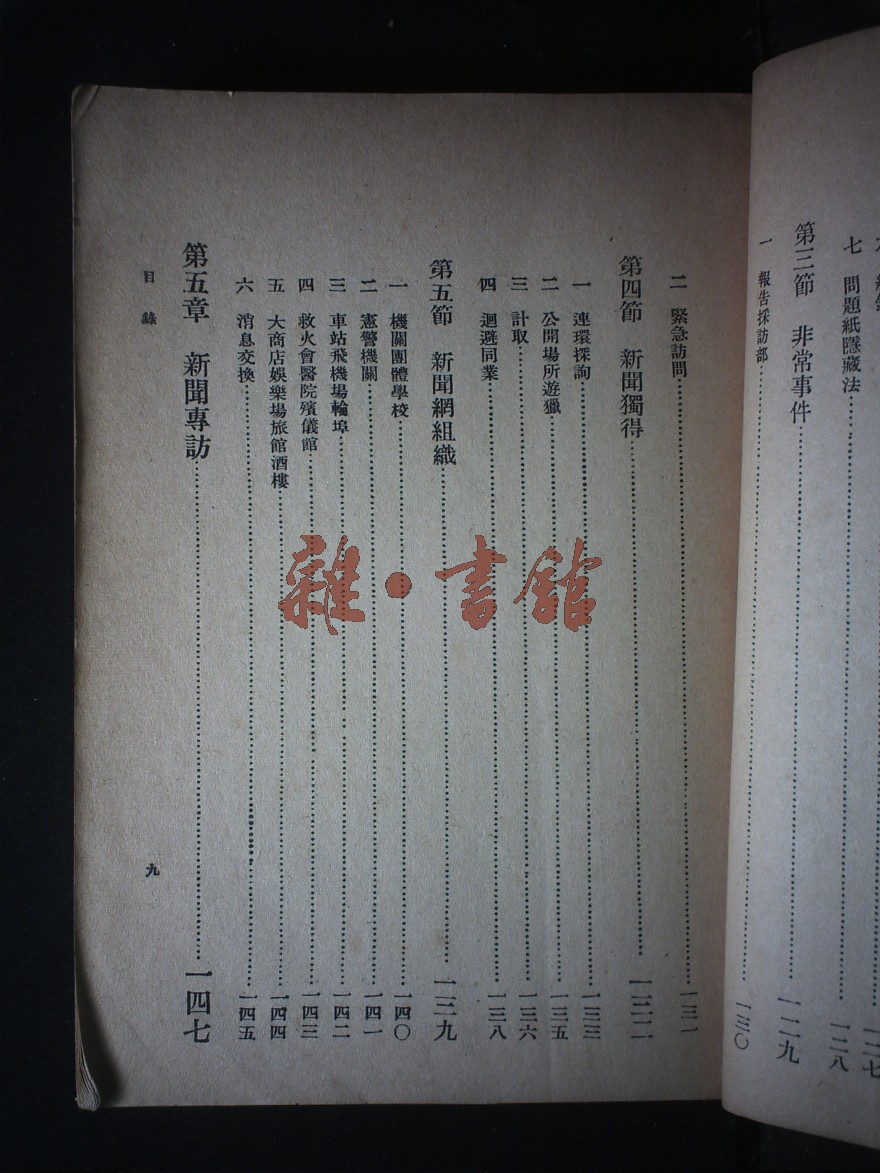 七　問題紙隱藏法……一二八
第三節　非常事件……一二九
一　報告採訪部……一三〇
二　緊急訪問……一三一
第四節　新聞獨得……一三二
一　連環探詢……一三三
二　公開場所遊獵……一三五
三　計取……一三六
四　迴避同業……一三八
第五節　新聞網組織……一三九
一　機關團體學校……一四〇
二　憲警機關……一四一
三　車站飛機場輪埠……一四二
四　救火會醫院殯儀館……一四三
五　大商店娛樂場旅館酒樓……一四四
六　消息交換……一四五
第五章　新聞專訪……一四七
目錄
九
雜·書館